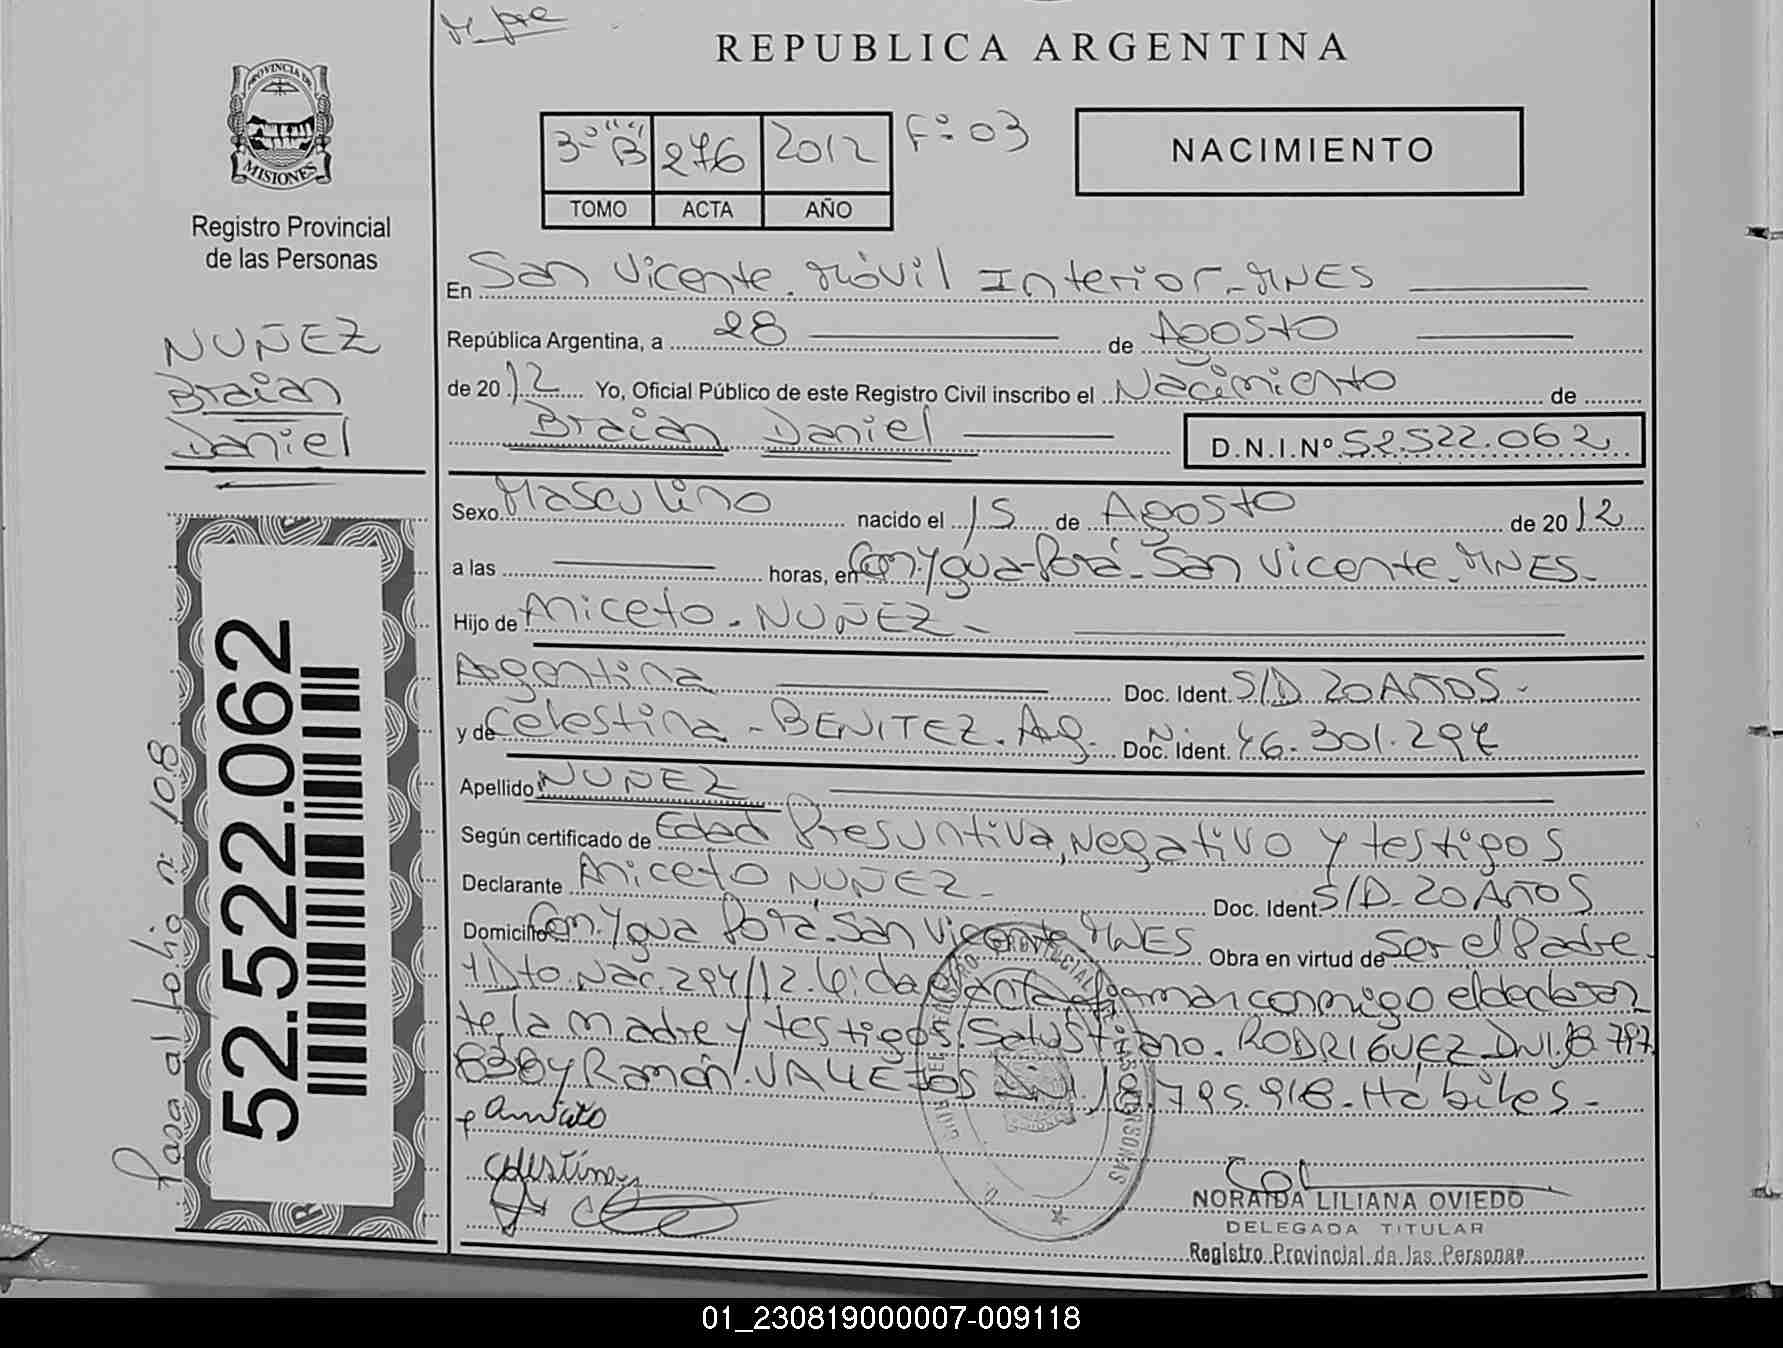 REPUBLICA ARGENTINA
PROVINCIA DE
MISIONES
Registro Provincial
de las Personas
3º "B" 276 2012 Fº: 03
TOMO ACTA AÑO
NACIMIENTO
En San Vicente. Móvil Interior-MNES
República Argentina, a 28 de Agosto
de 2012 Yo, Oficial Público de este Registro Civil inscribo el Nacimiento de
Braian Daniel D.N.I.Nº 52.522.062
NUÑEZ
Braian
Daniel
Sexo Masculino nacido el 15 de Agosto de 2012
a las horas, en Com. Ygua-Porá-San Vicente-MNES-
Hijo de Aniceto-NUÑEZ-
Argentina Doc. Ident. S/D 20 AÑOS-
y de Celestina-BENITEZ. Ag. Doc. Ident. Nº 46.301.297
Apellido NUÑEZ
Según certificado de Edad Presuntiva, Negativo y testigos
Declarante Aniceto NUÑEZ- Doc. Ident. S/D-20 AÑOS
Domicilio Com. Ygua Porá-San Vicente MNES Obra en virtud de Ser el Padre
y Dto. Nac. 294/12. Leida el acta firman conmigo el declaran
te, la madre y testigos. Salustiano. RODRIGUEZ DNI. 18.797.
838 y Ramón. VALLEJOS DNI. 18.795.918-Hábiles-
Celestina
NORAIDA LILIANA OVIEDO
DELEGADA TITULAR
Registro Provincial de las Personas
52.522.062
Pasa al folio nº 108
01_230819000007-009118